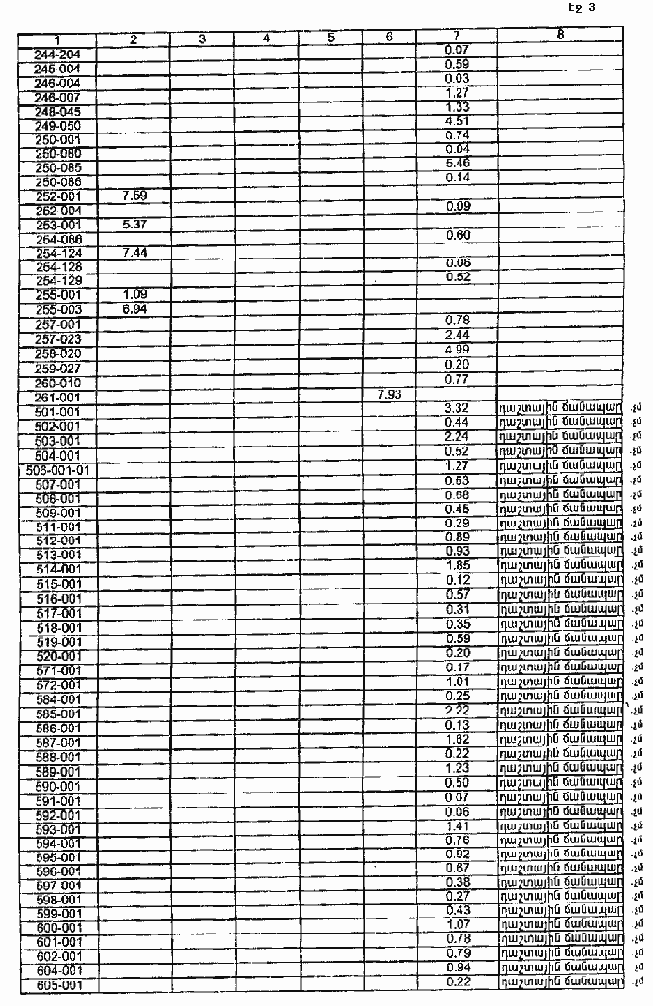 Էջ 3
1 2 3 4 5 6 7 8
244-204 0.07
245-004 0.59
246-004 0.03
246-007 1.27
248-045 1.33
249-050 4.51
250-001 0.74
250-080 0.04
250-085 5.46
250-086 0.14
252-001 7.59
252-004 0.09
253-001 5.37
254-088 0.60
254-124 7.44
254-128 0.06
254-129 0.52
255-001 1.09
255-003 6.94
257-001 0.78
257-023 2.44
258-020 4.99
259-027 0.20
260-010 0.77
261-001 7.93
501-001 3.32 դաշտային ճանապար .չմ
502-001 0.44 դաշտային ճանապար .չմ
503-001 2.24 դաշտային ճանապար .չմ
504-001 0.52 դաշտային ճանապար .չմ
506-001-01 1.27 դաշտային ճանապար .չմ
507-001 0.63 դաշտային ճանապար .չմ
508-001 0.68 դաշտային ճանապար .չմ
509-001 0.45 դաշտային ճանապար .չմ
511-001 0.29 դաշտային ճանապար .չմ
512-001 0.89 դաշտային ճանապար .չմ
513-001 0.93 դաշտային ճանապար .չմ
514-001 1.85 դաշտային ճանապար .չմ
515-001 0.12 դաշտային ճանապար .չմ
516-001 0.57 դաշտային ճանապար .չմ
517-001 0.31 դաշտային ճանապար .չմ
518-001 0.35 դաշտային ճանապար .չմ
519-001 0.59 դաշտային ճանապար .չմ
520-001 0.20 դաշտային ճանապար .չմ
571-001 0.17 դաշտային ճանապար .չմ
572-001 1.01 դաշտային ճանապար .չմ
584-001 0.25 դաշտային ճանապար .չմ
585-001 2.22 դաշտային ճանապար .չմ
586-001 0.13 դաշտային ճանապար .չմ
587-001 1.82 դաշտային ճանապար .չմ
588-001 0.22 դաշտային ճանապար .չմ
589-001 1.23 դաշտային ճանապար .չմ
590-001 0.50 դաշտային ճանապար .չմ
591-001 0.07 դաշտային ճանապար .չմ
592-001 0.06 դաշտային ճանապար .չմ
593-001 1.41 դաշտային ճանապար .չմ
594-001 0.76 դաշտային ճանապար .չմ
595-001 դաշտային ճանապար .չմ
596-001 0.67 դաշտային ճանապար .չմ
597-001 0.38 դաշտային ճանապար .չմ
598-001 0.27 դաշտային ճանապար .չմ
599-001 0.43 դաշտային ճանապար .չմ
600-001 1.07 դաշտային ճանապար .չմ
601-001 0.78 դաշտային ճանապար .չմ
602-001 0.79 դաշտային ճանապար .չմ
604-001 0.94 դաշտային ճանապար .չմ
605-001 0.22 դաշտային ճանապար .չմ